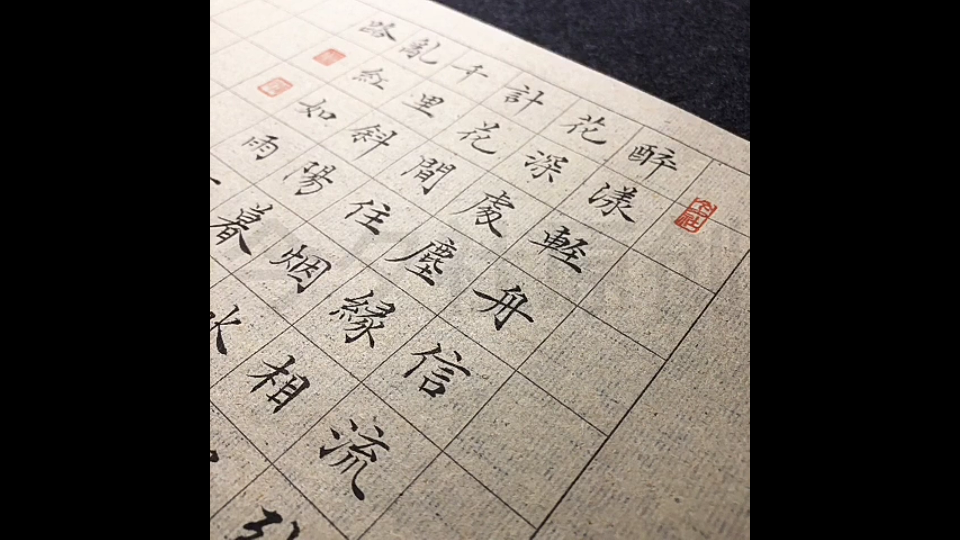 醉漾輕舟信流
花深處塵緣相
計花間住烟水
千里斜陽暮
亂紅如雨
路